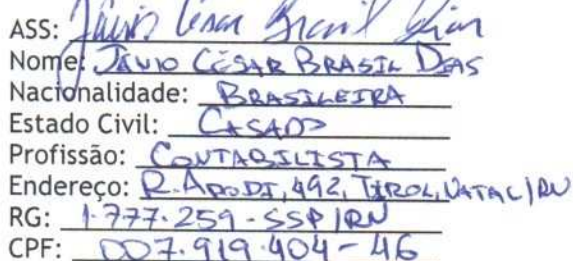 ASS: Jávio César Brasil Dias
Nome: JÁVIO CÉSAR BRASIL DIAS
Nacionalidade: BRASILEIRA
Estado Civil: CASADO
Profissão: CONTABILISTA
Endereço: R. APODI, 492, TIROL, NATAL/RN
RG: 1.777.259-SSP/RN
CPF: 007.919.404-46